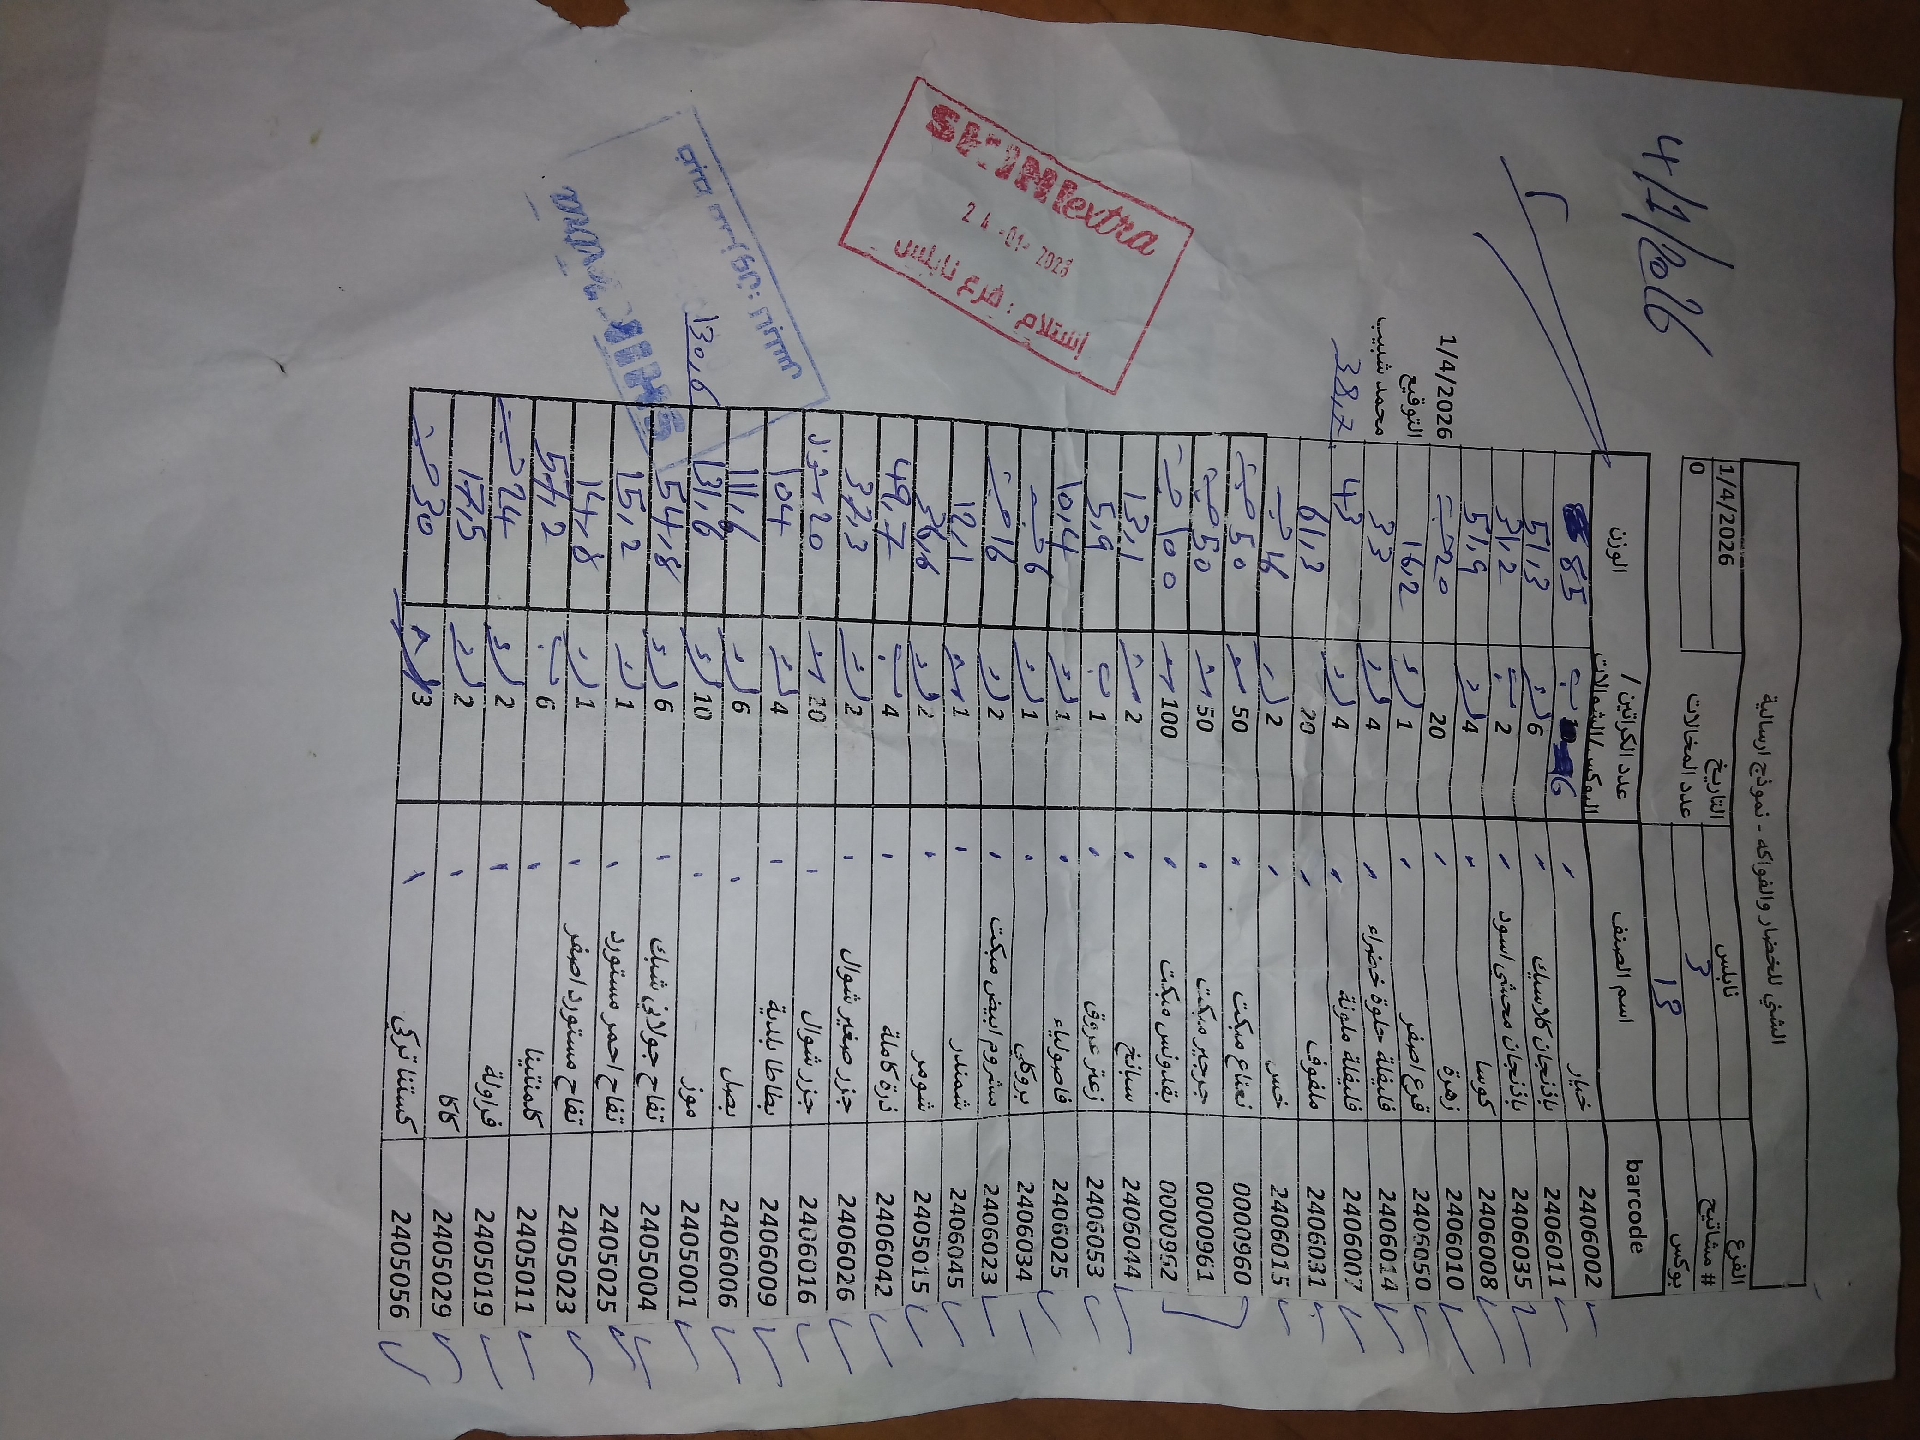 4/1/2026
الشني للخضار والفواكه - نموذج ارسالية
الفرع نابلس التاريخ 1/4/2026
# مشاتيح 3 عدد المخالات 0
بوكس 13
barcode اسم الصنف عدد الكراتين / البوكس/الشوالات الوزن
2406002 خيار 6 85
2406011 باذنجان كلاسيك 6 51,3
2406035 باذنجان محشي اسود 2 31,2
2406008 كوسا 4 51,9
2406010 زهرة 20 20
2405050 قرع اصفر 1 16,2
2406014 فليفلة حلوة خضراء 4 33
2406007 فليفلة ملونة 4 43
2406031 ملفوف 20 61,3
2406015 خس 2 16
0000960 نعناع مبكت 50 50 حبة
0000961 جرجير مبكت 50 50 حبة
0000962 بقدونس مبكت 100 100 حبة
2406044 سبانخ 2 13,1
2406053 زعتر عروق 1 5,9
2406025 فاصولياء 1 10,4
2406034 بروكلي 1 6
2406023 مشروم ابيض مبكت 2 16 حبة
2406045 شمندر 1 12,1
2405015 شومر 2 36,6
2406042 ذرة كاملة 4 49,7
2406026 جزر صغير شوال 2 37,3
2406016 جزر شوال 20 20 شوال
2406009 بطاطا بلدية 4 104
2406006 بصل 6 111,6
2405001 موز 10 131,6
2405004 تفاح جولاني شبك 6 54,8
2405025 تفاح احمر مستورد 1 15,2
2405023 تفاح مستورد اصفر 1 14,8
2405011 كلمنتينا 6 57,2
2405019 فراولة 2 24
2405029 كاكا 2 17,5
2405056 كستنا تركي 3 30
1/4/2026
التوقيع
محمد شبيب
38,7
130,6
extra
استلام : فرع نابلس